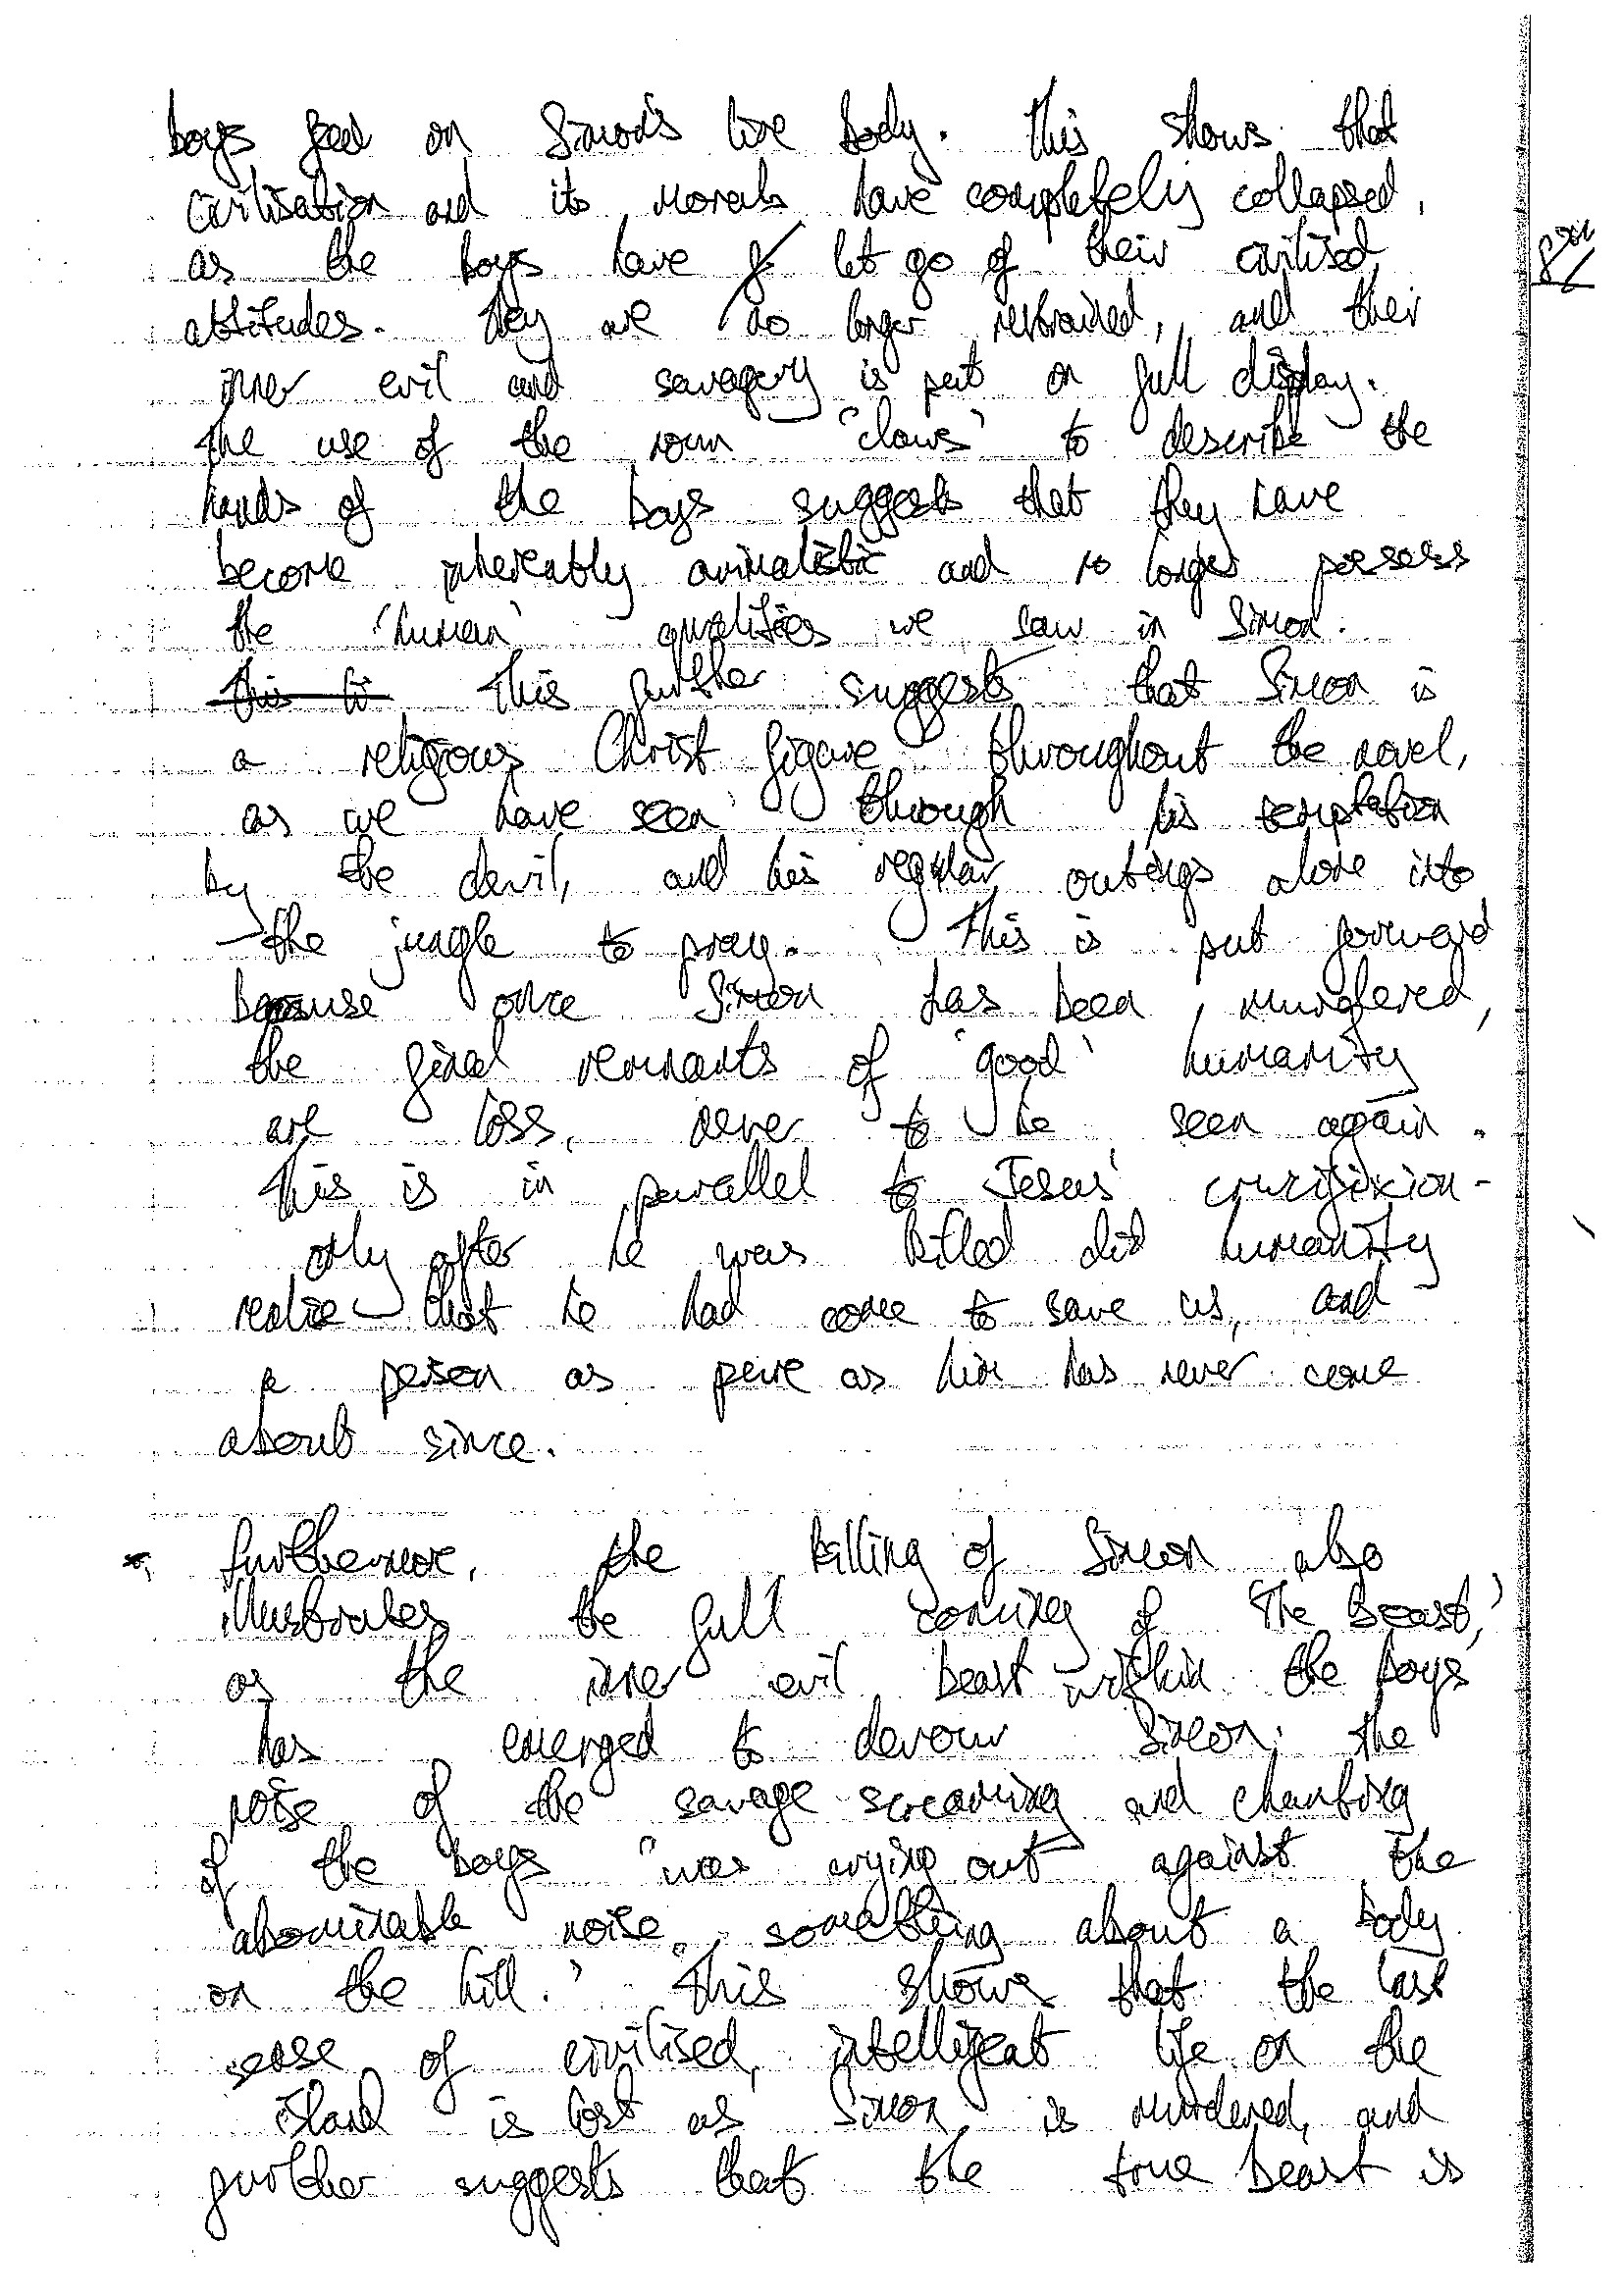 boys feed on Simon's live body. This shows that
civilisation and its morals have completely collapsed,
as the boys have let go of their civilised
attitudes. They are no longer restrained, and their
inner evil and savagery is put on full display.
The use of the noun 'claws' to describe the
hands of the boys suggests that they have
become inhereably animalistic and no longer possess
the 'human' qualities we saw in Simon.
This further suggests that Simon is
a religious Christ figure throughout the novel,
as we have seen through his temptation
by the devil, and his regular outings alone into
the jungle to pray. This is put forward
because once Simon has been murdered,
the final remnants of 'good' humanity
are loss, never to be seen again.
This is in parallel to Jesus' crucifixion -
only after he was killed did humanity
realise that he had come to save us, and
a person as pure as him has never come
about since.
Furthermore, the killing of Simon also
illustrates the full coming of 'The Beast,'
as the inner evil beast within the boys
has emerged to devour Simon; the
noise of the savage screaming and chanting
of the boys "was crying out against the
abominable noise something about a body
on the hill.' This shows that the last
sense of civilised, intelligent life on the
island is lost as Simon is murdered, and
further suggests that the true beast is